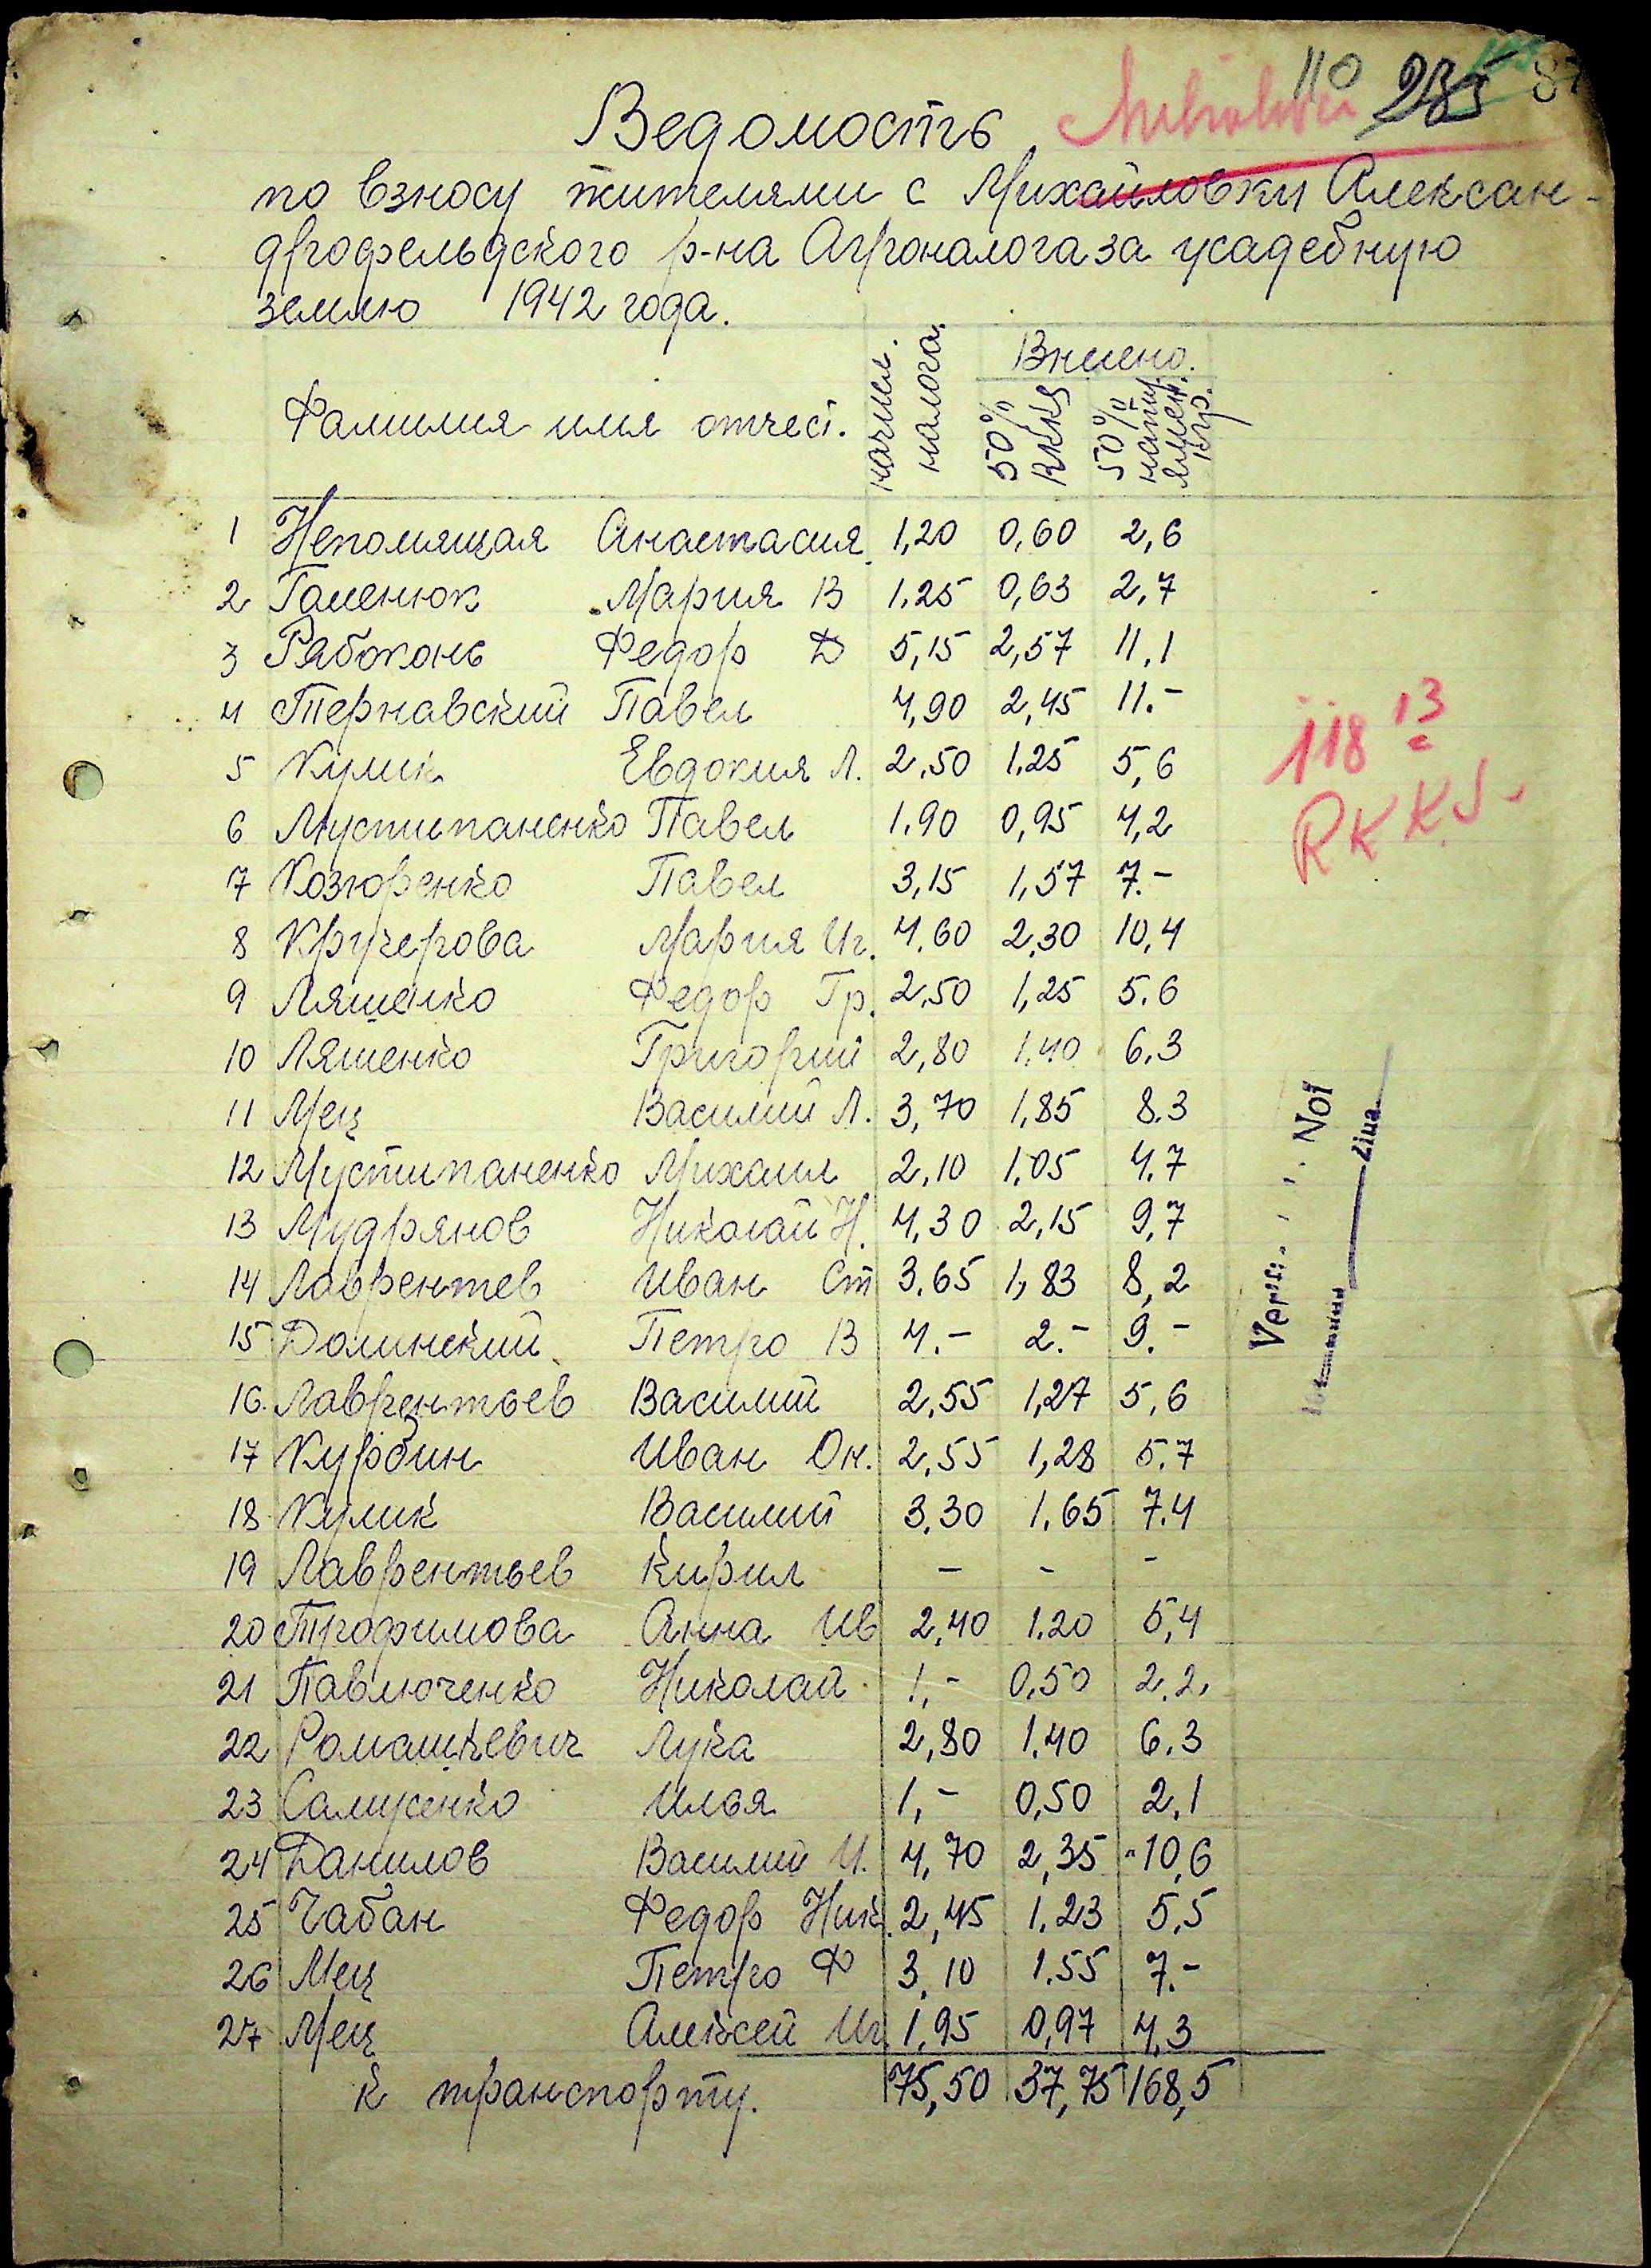 110 285 87
Ведомость
по взносу жителями с Михайловки Алексан-
дрофельдского р-на Агроналога за усадебную
землю 1942 года.
Фамилия имя отчест. начисл. налога. Внесено.
50% RKKS 50% натур. ячмен. кгр.
1 Непомящая Анастасия 1,20 0,60 2,6
2 Гаменюк Мария В 1.25 0,63 2,7
3 Рябоконь Федор Д 5,15 2,57 11,1
4 Тернавский Павел 4,90 2,45 11.-
5 Кулик Евдокия Л. 2,50 1.25 5,6
6 Мустипаненко Павел 1.90 0,95 4,2
7 Козюренко Павел 3,15 1,57 7.-
8 Кручерова Мария Иг. 4,60 2,30 10,4
9 Ляшенко Федор Гр. 2,50 1,25 5.6
10 Ляшенко Григорий 2,80 1.40 6.3
11 Мец Василий Л. 3,70 1,85 8.3
12 Мустипаненко Михаил 2,10 1.05 4.7
13 Мудрянов Николай Н. 4,30 2,15 9,7
14 Лаврентев Иван Ст 3.65 1,83 8,2
15 Долинский Петро В 4.- 2.- 9.-
16. Лаврентьев Василий 2,55 1,27 5,6
17 Курбин Иван Он. 2,55 1,28 5.7
18 Кулик Василий 3,30 1.65 7.4
19 Лаврентьев Кирил - - -
20 Трофимова Анна Ив 2,40 1.20 5,4
21 Павлюченко Николай 1,- 0,50 2,2,
22 Ромашкевич Лука 2,80 1.40 6.3
23 Самусенко Илья 1,- 0,50 2,1
24 Данилов Василий И. 4,70 2,35 10,6
25 Чабан Федор Ник. 2,45 1.23 5,5
26 Мец Петро Ф 3,10 1.55 7.-
27 Мец Алексей Иг. 1,95 0,97 4,3
К транспорту. 75,50 37,75 168,5
118 13
RKKS.
Verif. Noi
Ziua